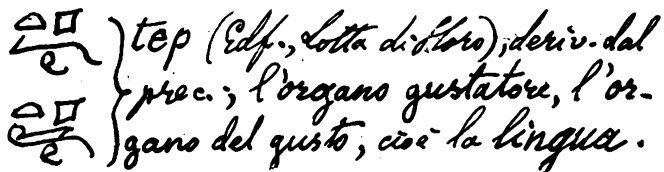 tep (Edf., Lotta di Horo), deriv. dal
prec.; l'organo gustatore, l'or-
gano del gusto, cioè la lingua.